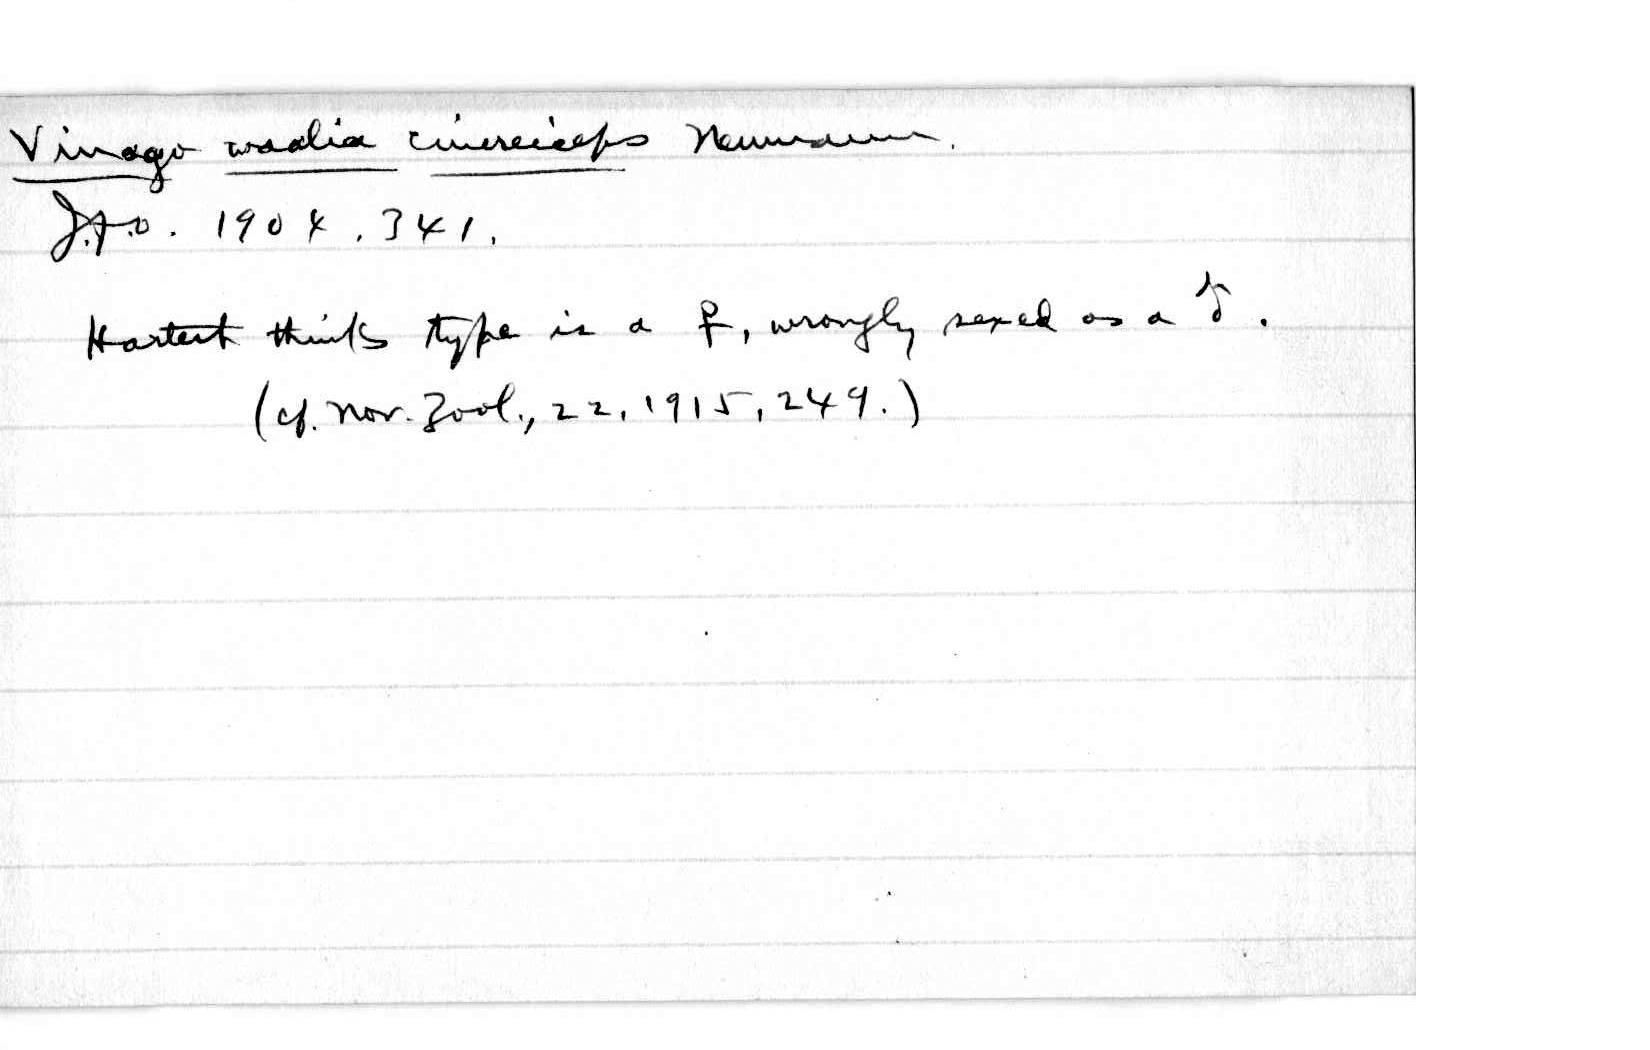 Vinago waalia cinereiceps Neumann.
J.f.O. 1904, 341.
Hartert thinks type is a ♀, wrongly sexed as a ♂.
(cf. Nov. Zool., 22, 1915, 249.)